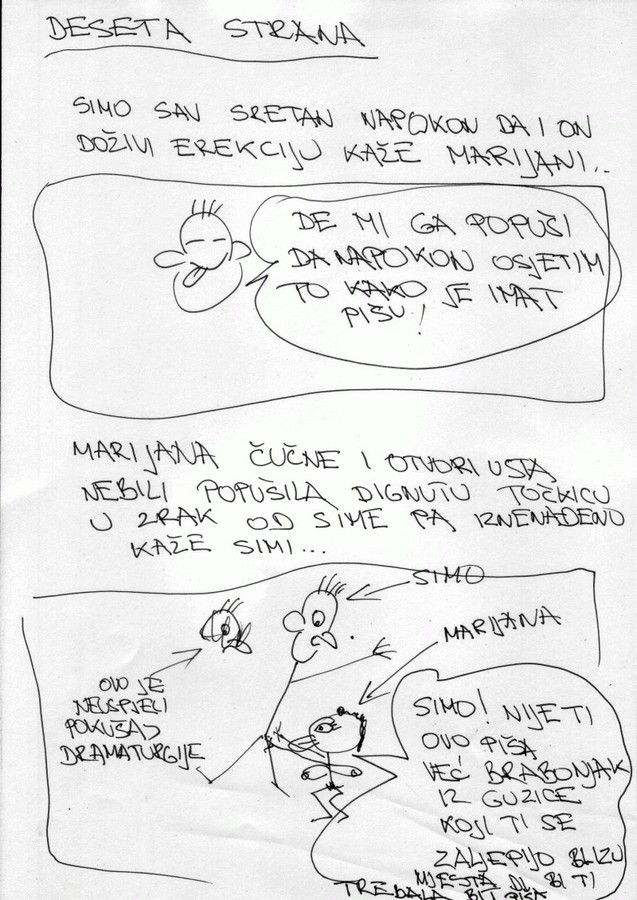 DESETA STRANA
SIMO SAV SRETAN NAPOKON DA I ON
DOŽIVI EREKCIJU KAŽE MARIJANI...
DE MI GA POPUŠI
DA NAPOKON OSJETIM
TO KAKO JE IMAT
PIŠU!
MARIJANA ČUČNE I OTVORI USTA
NEBILI POPUŠILA DIGNUTU TOČKICU
U ZRAK OD SIME PA IZNENAĐENO
KAŽE SIMI...
SIMO
MARIJANA
OVO JE
NEUSPJELI
POKUŠAJ
DRAMATURGIJE
SIMO! NIJE TI
OVO PIŠA
VEĆ BRABONJAK
IZ GUZICE
KOJI TI SE
ZALJEPIJO BLIZU
MJESTA DI BI TI
TREBALA BIT PIŠA